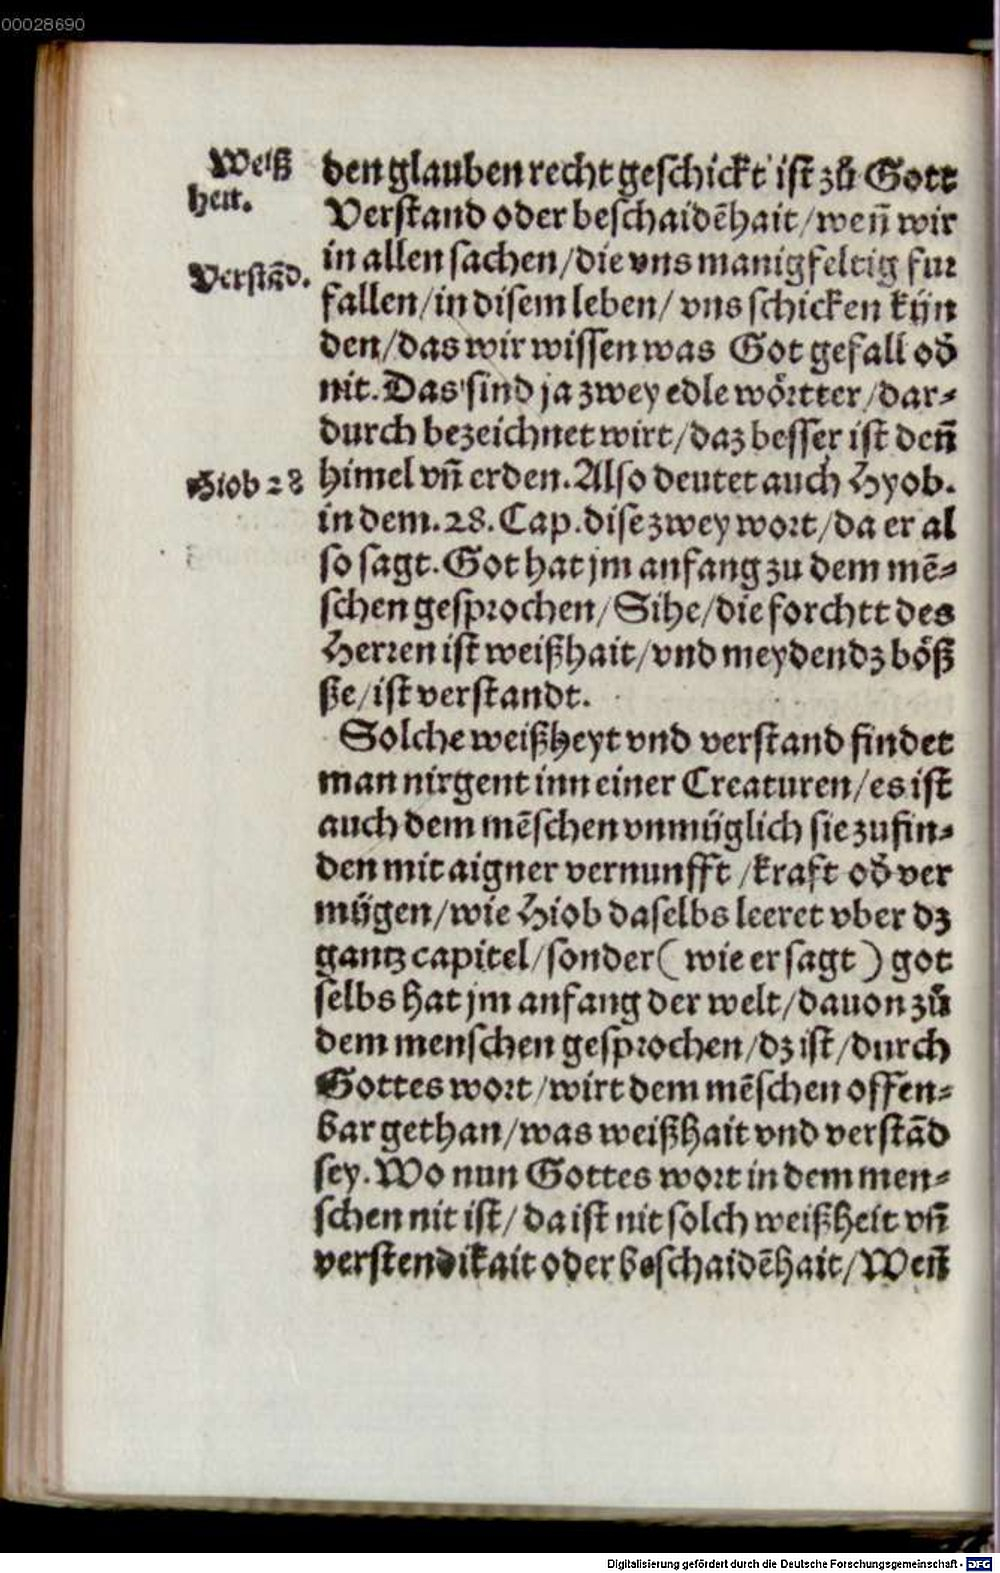 00028690
Weiß
heit.
Verstãd.
Hiob 28
den glauben recht geschickt ist zů Gott
Verstand oder beschaidẽhait/weñ wir
in allen sachen/die vns manigfeltig fur
fallen/in disem leben/ vns schicken kün
den/das wir wissen was Got gefall oď
nit. Das sind ja zwey edle wörtter/dar-
durch bezeichnet wirt/daz besser ist deñ
himel vñ erden. Also deutet auch Hyob.
in dem.28. Cap. dise zwey wort/da er al
so sagt. Got hat jm anfang zu dem mẽ-
schen gesprochen/Sihe/die forchtt des
Herren ist weißhait/vnd meyden dz böß
ße/ist verstandt.
Solche weißheyt vnd verstand findet
man nirgent inn einer Creaturen/es ist
auch dem mẽschen vnmüglich sie zufin-
den mit aigner vernunfft /kraft oď ver
mügen/wie Hiob daselbs leeret vber dz
gantz capitel/sonder( wie er sagt ) got
selbs hat jm anfang der welt/dauon zů
dem menschen gesprochen/dz ist/durch
Gottes wort/wirt dem mẽschen offen-
bar gethan/was weißhait vnd verstãd
sey. Wo nun Gottes wort in dem men-
schen nit ist/ da ist nit solch weißheit vñ
verstendikait oder beschaidẽhait/Weñ
Digitalisierung gefördert durch die Deutsche Forschungsgemeinschaft - DFG